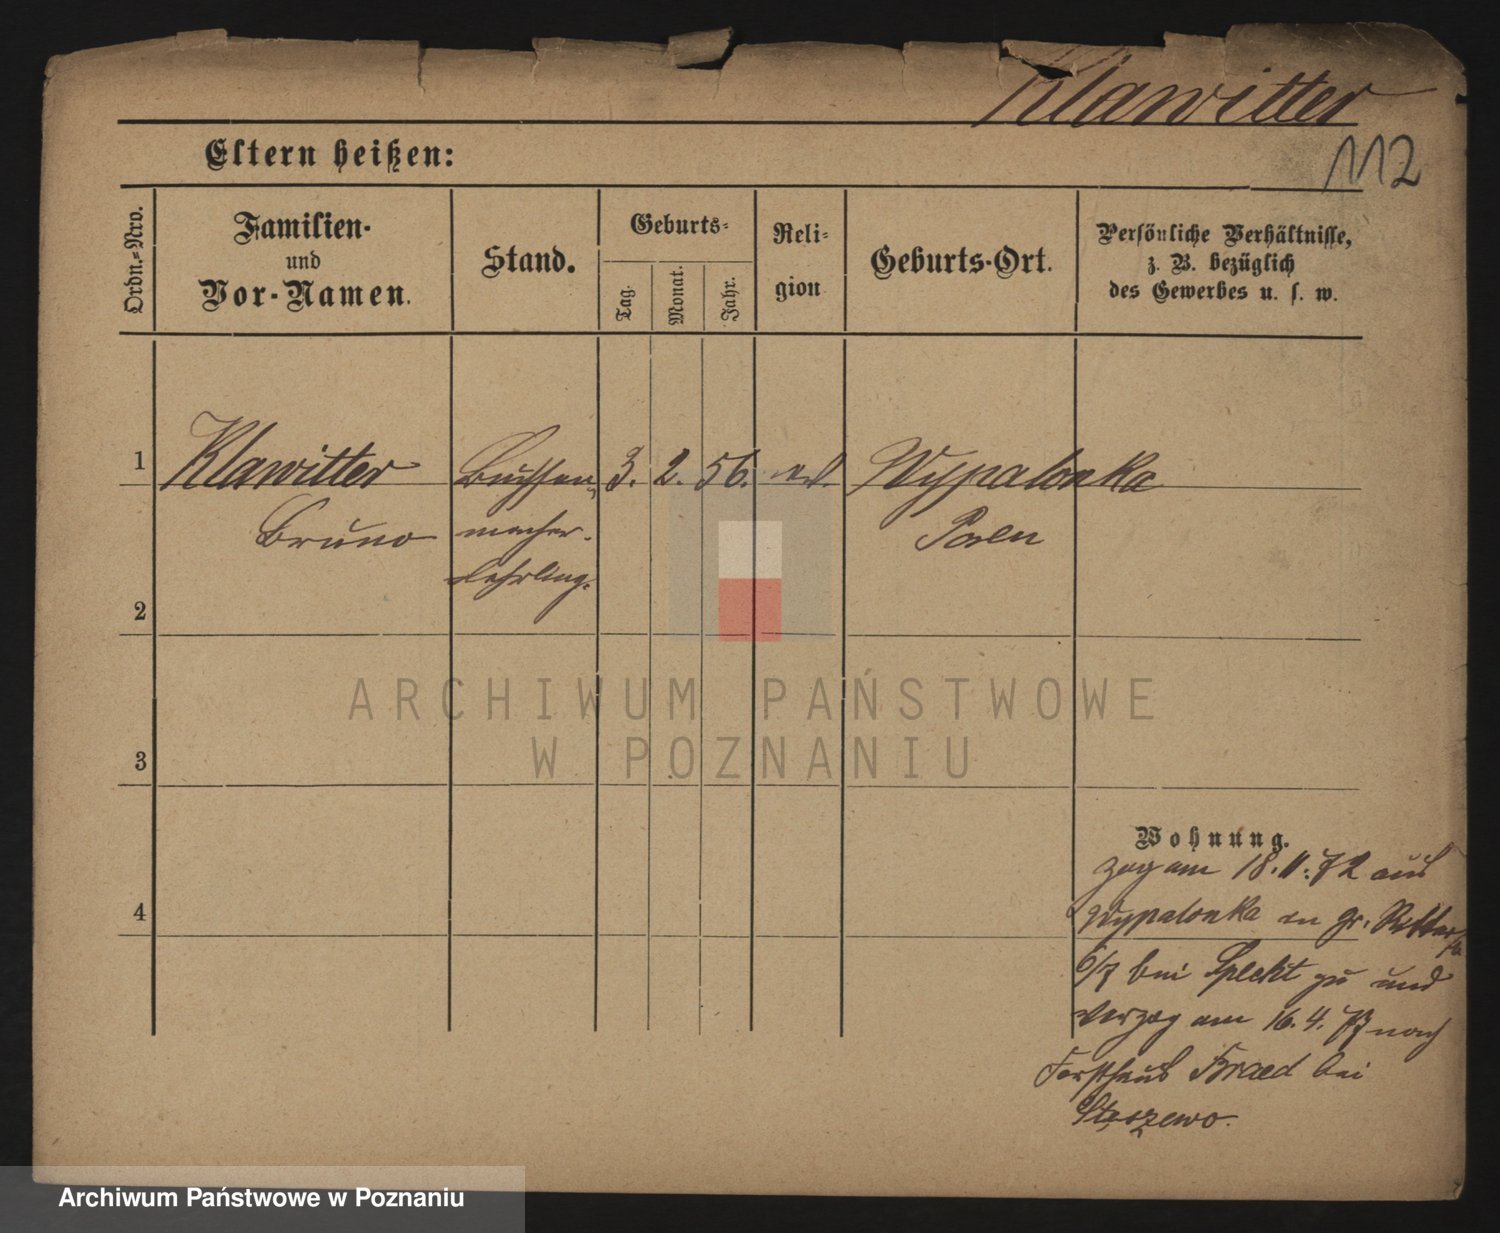 Klawitter
112
Eltern heißen:
Ordn.-Nro.
Familien-
und
Vor-Namen.
Stand.
Geburts-
Tag.
Monat.
Jahr.
Reli-
gion
Geburts-Ort.
Persönliche Verhältnisse,
z. B. bezüglich
des Gewerbes u. s. w.
1
Klawitter Büchsen- 3. 2. 56. ev. Wypalonka
Bruno macher- Posen
lehrling.
2
3
4
Wohnung.
zog am 18.11.72 aus
Wypalonka in gr. Ritter
6/7 bei Specht zu und
verzog am 16.4.77 nach
Forsthaus bei
ARCHIWUM PAŃSTWOWE
W POZNANIU
Archiwum Państwowe w Poznaniu